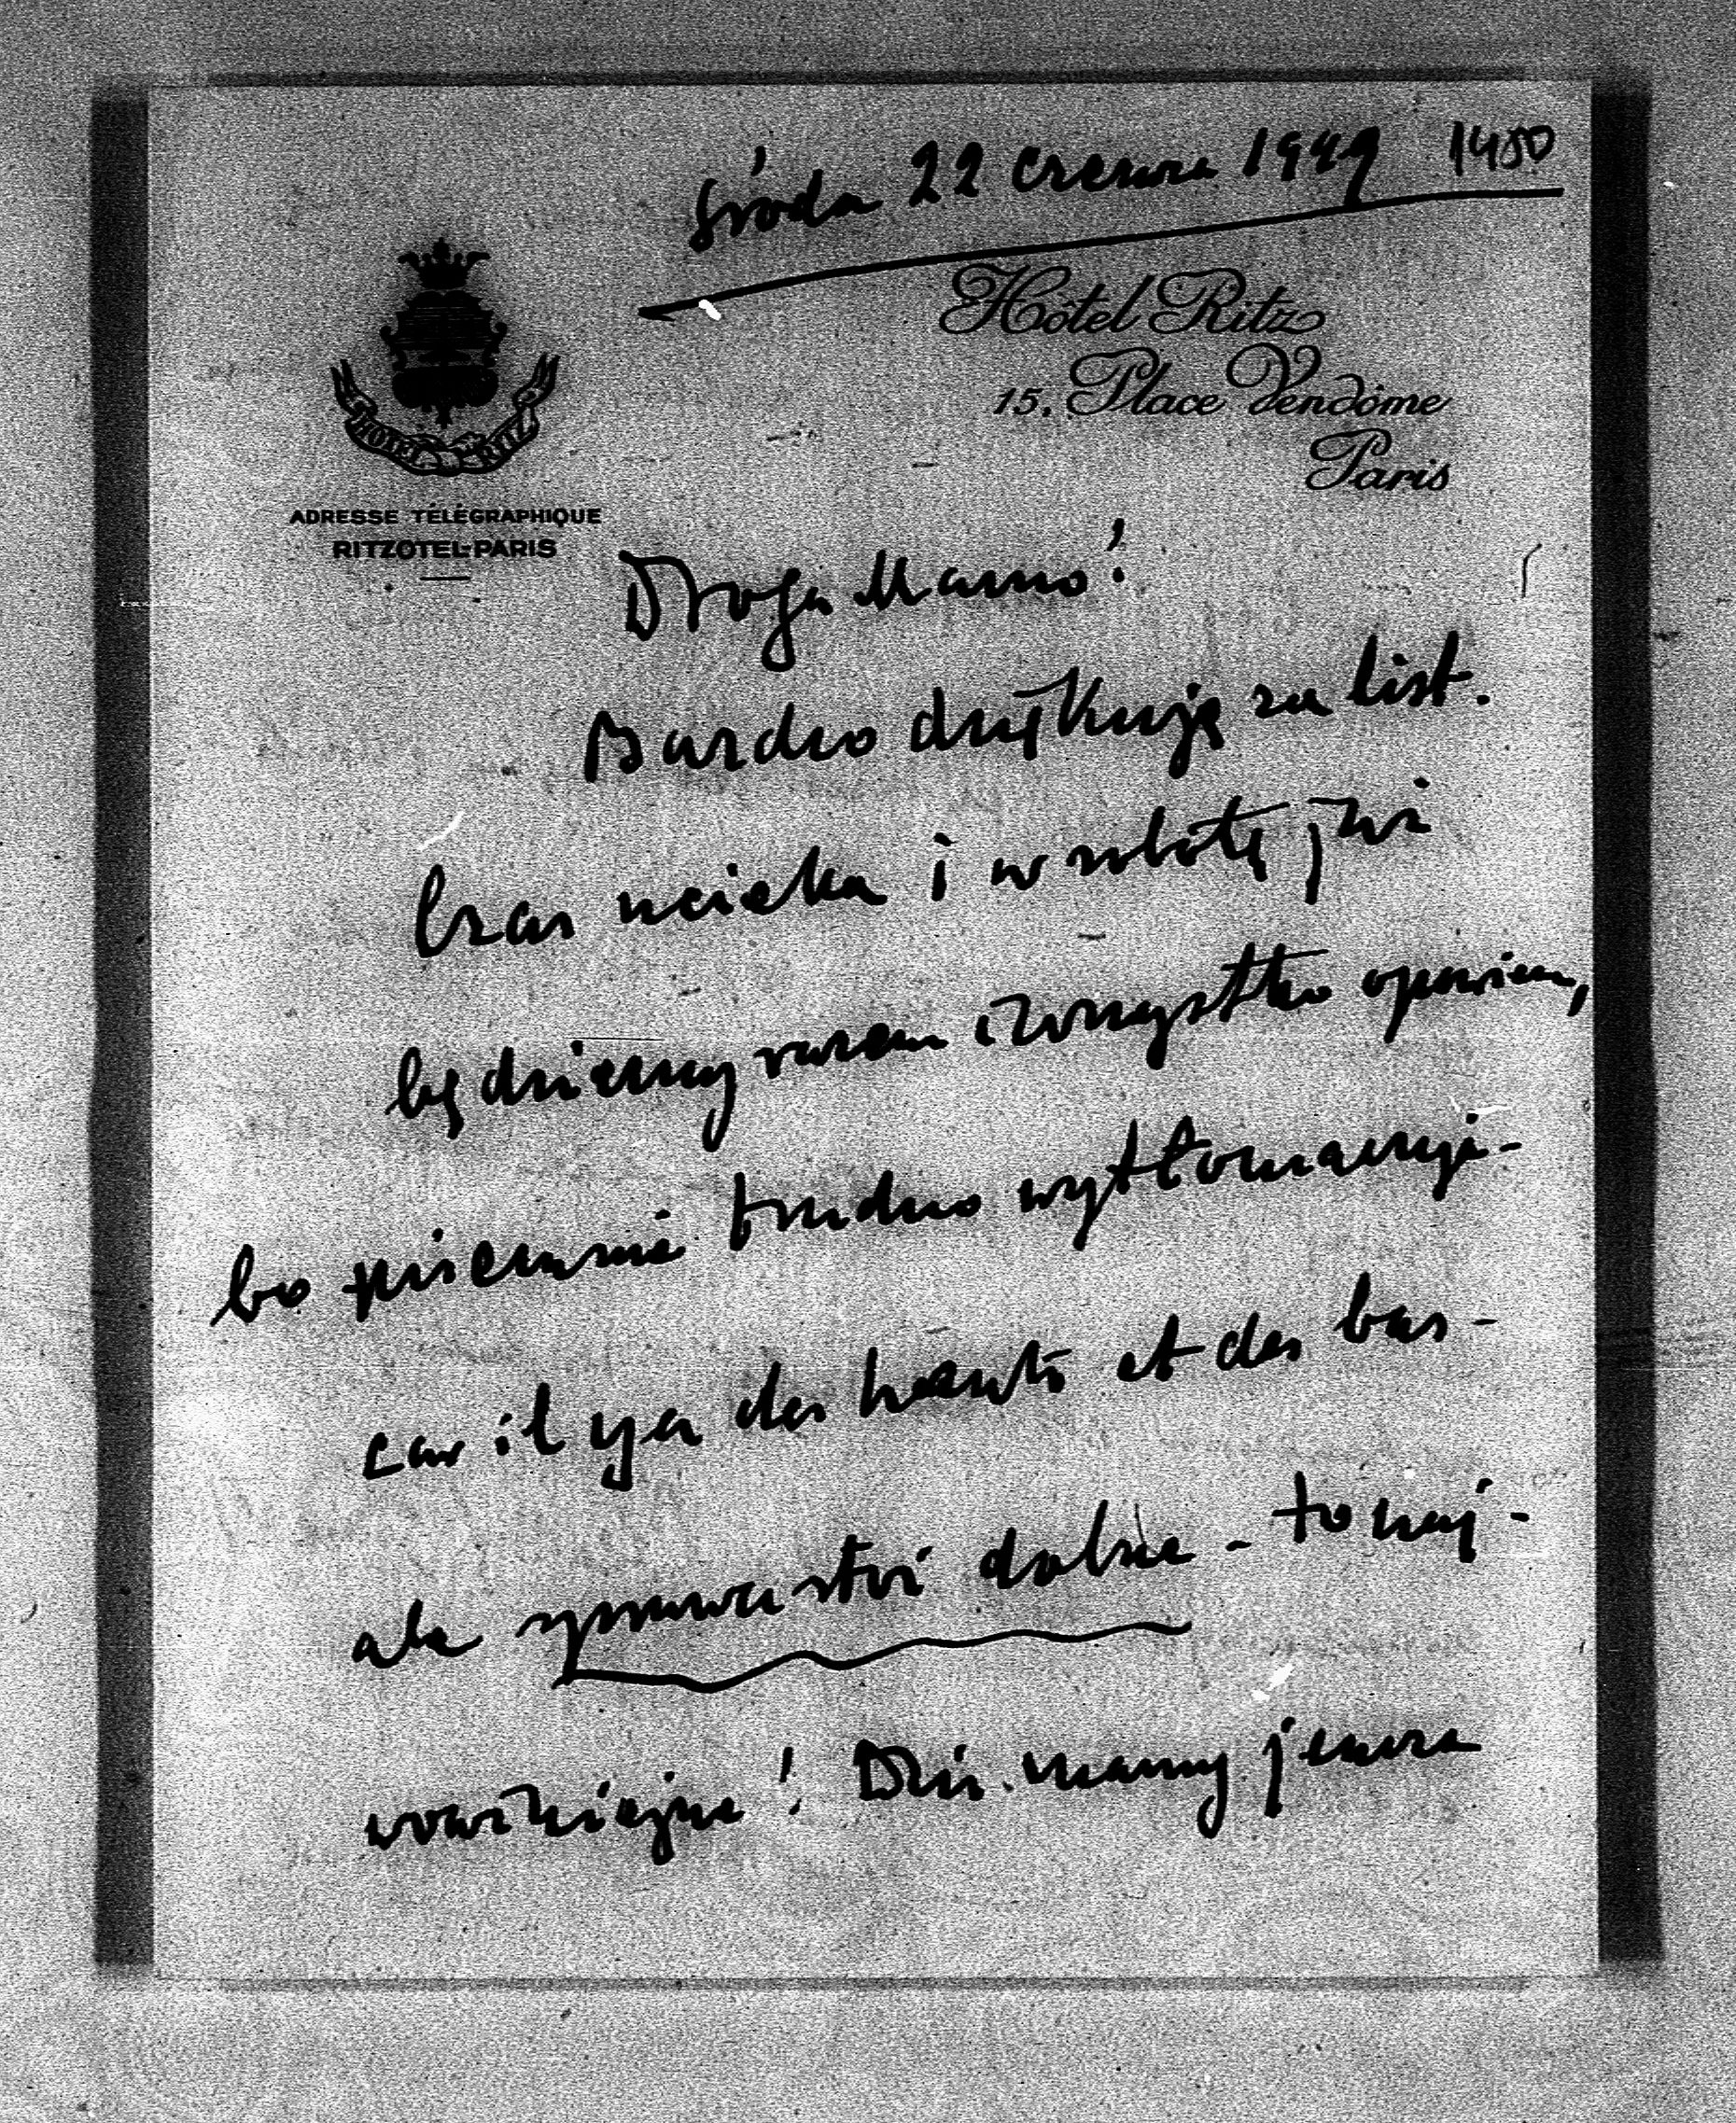 środa 22 czerwca 1949 1480
Hôtel Ritz
15, Place Vendôme
Paris
HOTEL RITZ
ADRESSE TÉLÉGRAPHIQUE
RITZOTEL-PARIS
Droga Mamo!
Bardzo dziękuję za list.
Czas ucieka i w sobotę już
będziemy razem i wszystko opowiem,
bo piśmiennie trudno
car il y a des hauts et des bas -
ale sprawa stoi dobrze - to naj-
ważniejsze! Dziś mamy jeszcze